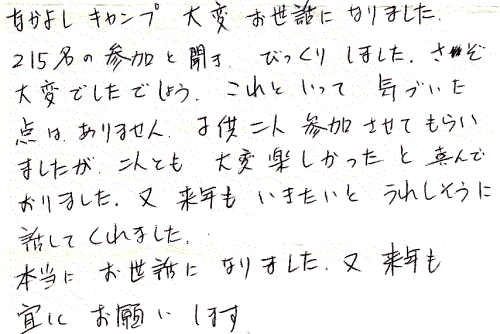 なかよしキャンプ 大変 お世話になりました.
215名の参加と聞き びっくりしました. さぞ
大変でしたでしょう. これといって 気づいた
点は ありません. 子供二人 参加させてもらい
ましたが 二人とも 大変楽しかったと 喜んで
おりました. 又 来年も いきたいと うれしそうに
話してくれました.
本当に お世話に なりました. 又 来年も
宜しく お願いします